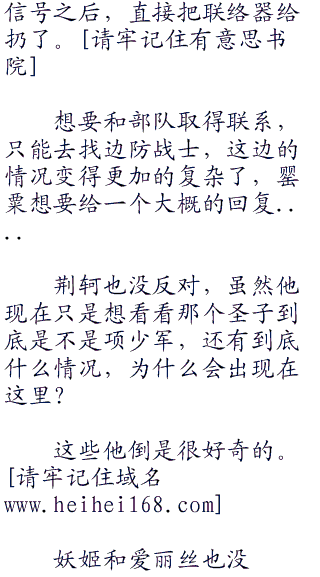 信号之后，直接把联络器给
扔了。[请牢记住有意思书
院]
想要和部队取得联系，
只能去找边防战士，这边的
情况变得更加的复杂了，罂
粟想要给一个大概的回复..
..
荆轲也没反对，虽然他
现在只是想看看那个圣子到
底是不是项少军，还有到底
什么情况，为什么会出现在
这里？
这些他倒是很好奇的。
[请牢记住域名
www.heihei168.com]
妖姬和爱丽丝也没